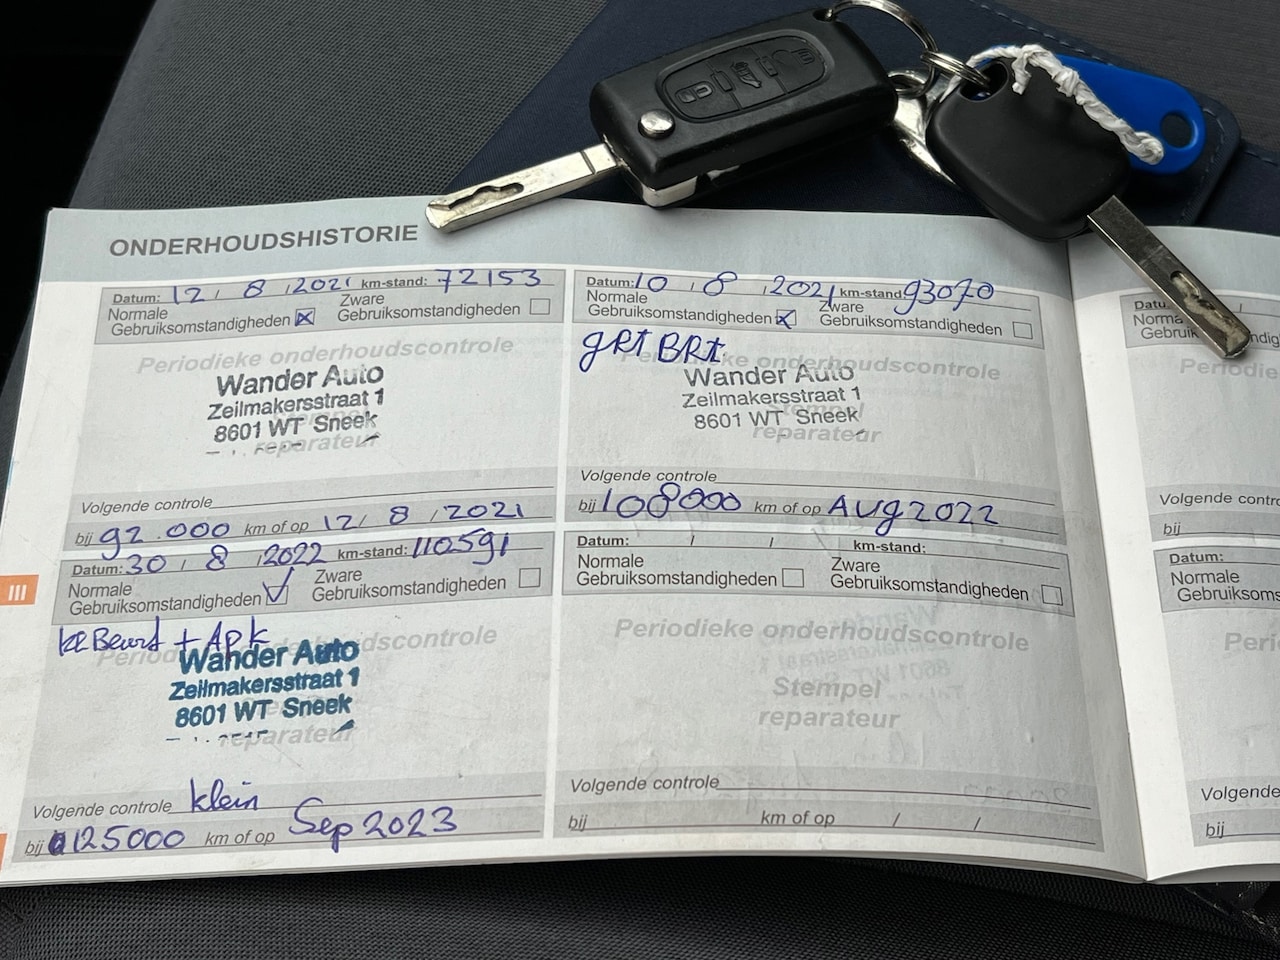 ONDERHOUDSHISTORIE
Datum: 12 / 8 / 2021 km-stand: 72153
Normale Gebruiksomstandigheden ☒ Zware Gebruiksomstandigheden ☐
Periodieke onderhoudscontrole
Wander Auto
Zeilmakersstraat 1
8601 WT Sneek
reparateur
Volgende controle
bij 92.000 km of op 12 / 8 / 2021
Datum: 10 / 8 / 2021 km-stand 93070
Normale Gebruiksomstandigheden ☒ Zware Gebruiksomstandigheden ☐
gRt BRt.
Periodieke onderhoudscontrole
Wander Auto
Zeilmakersstraat 1
Stempel
8601 WT Sneek
reparateur
Volgende controle
bij 108000 km of op Aug 2022
III
Datum: 30 / 8 / 2022 km-stand: 110591
Normale Gebruiksomstandigheden ☑ Zware Gebruiksomstandigheden ☐
kl Beurt + Apk
Periodieke onderhoudscontrole
Wander Auto
Zeilmakersstraat 1
8601 WT Sneek
reparateur
Volgende controle klein
bij 125000 km of op Sep 2023
Datum: / / km-stand:
Normale Gebruiksomstandigheden ☐ Zware Gebruiksomstandigheden ☐
Periodieke onderhoudscontrole
Stempel
reparateur
Volgende controle
bij km of op / /
Datu
Norma
Gebruik
Periodie
Volgende contr
bij
Datum:
Normale
Gebruiksoms
Peri
Volgende
bij